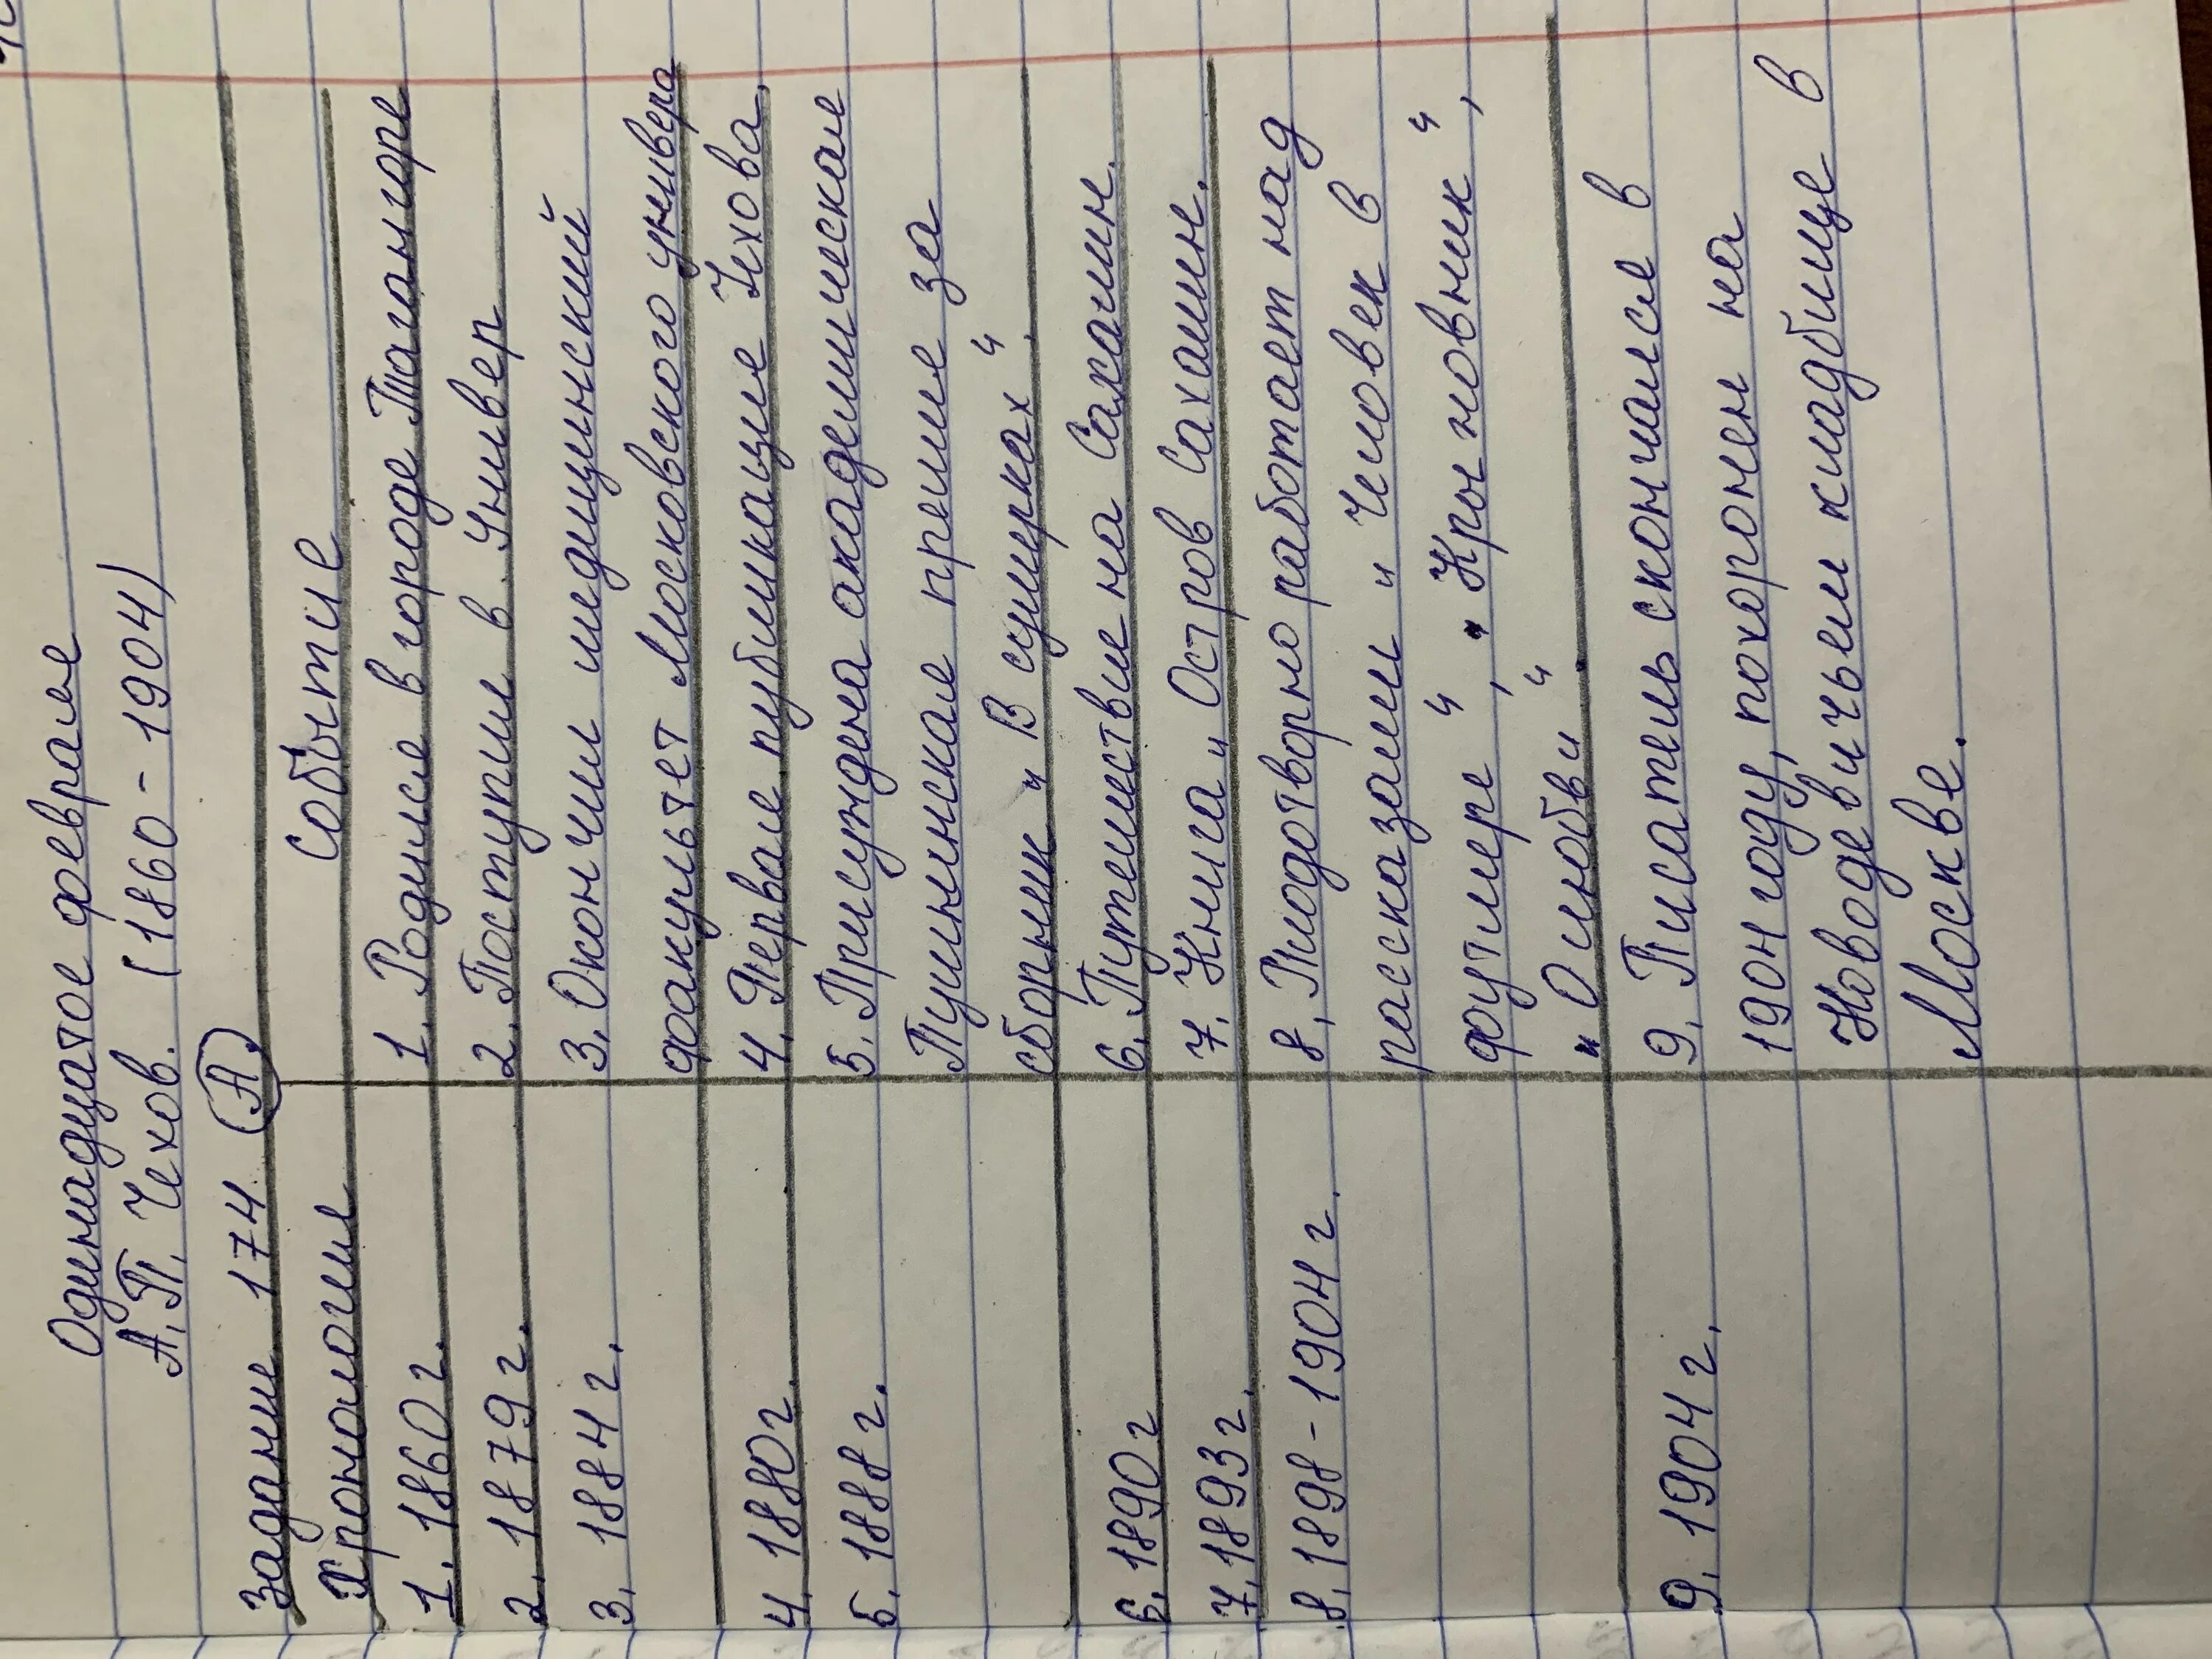 Одинадцатое февраля
А.П. Чехов. (1860-1904)
Задание 174 (А.)
Хронология Событие
1. 1860 г. 1. Родился в городе Таганроге
2. 1879 г. 2. Поступил в Универ
3. 1884 г. 3. Окончил медицинский
факультет Московского универа
4. 1880г. 4. Первая публикация Чехова.
5. 1888 г. 5. Присуждена академическая
Пушкинская премия за
сборник „В сумерках“.
6. 1890г 6. Путешествие на Сахалин.
7. 1893г. 7. Книга „Остров Сахалин.
8. 1898-1904 г. 8. Плодотворно работает над
рассказами „Человек в
футляре“, „Крыжовник“,
„О любви“.
9. 1904 г. 9. Писатель скончался в
1904 году, похоронен на
Новодевичьем кладбище в
Москве.